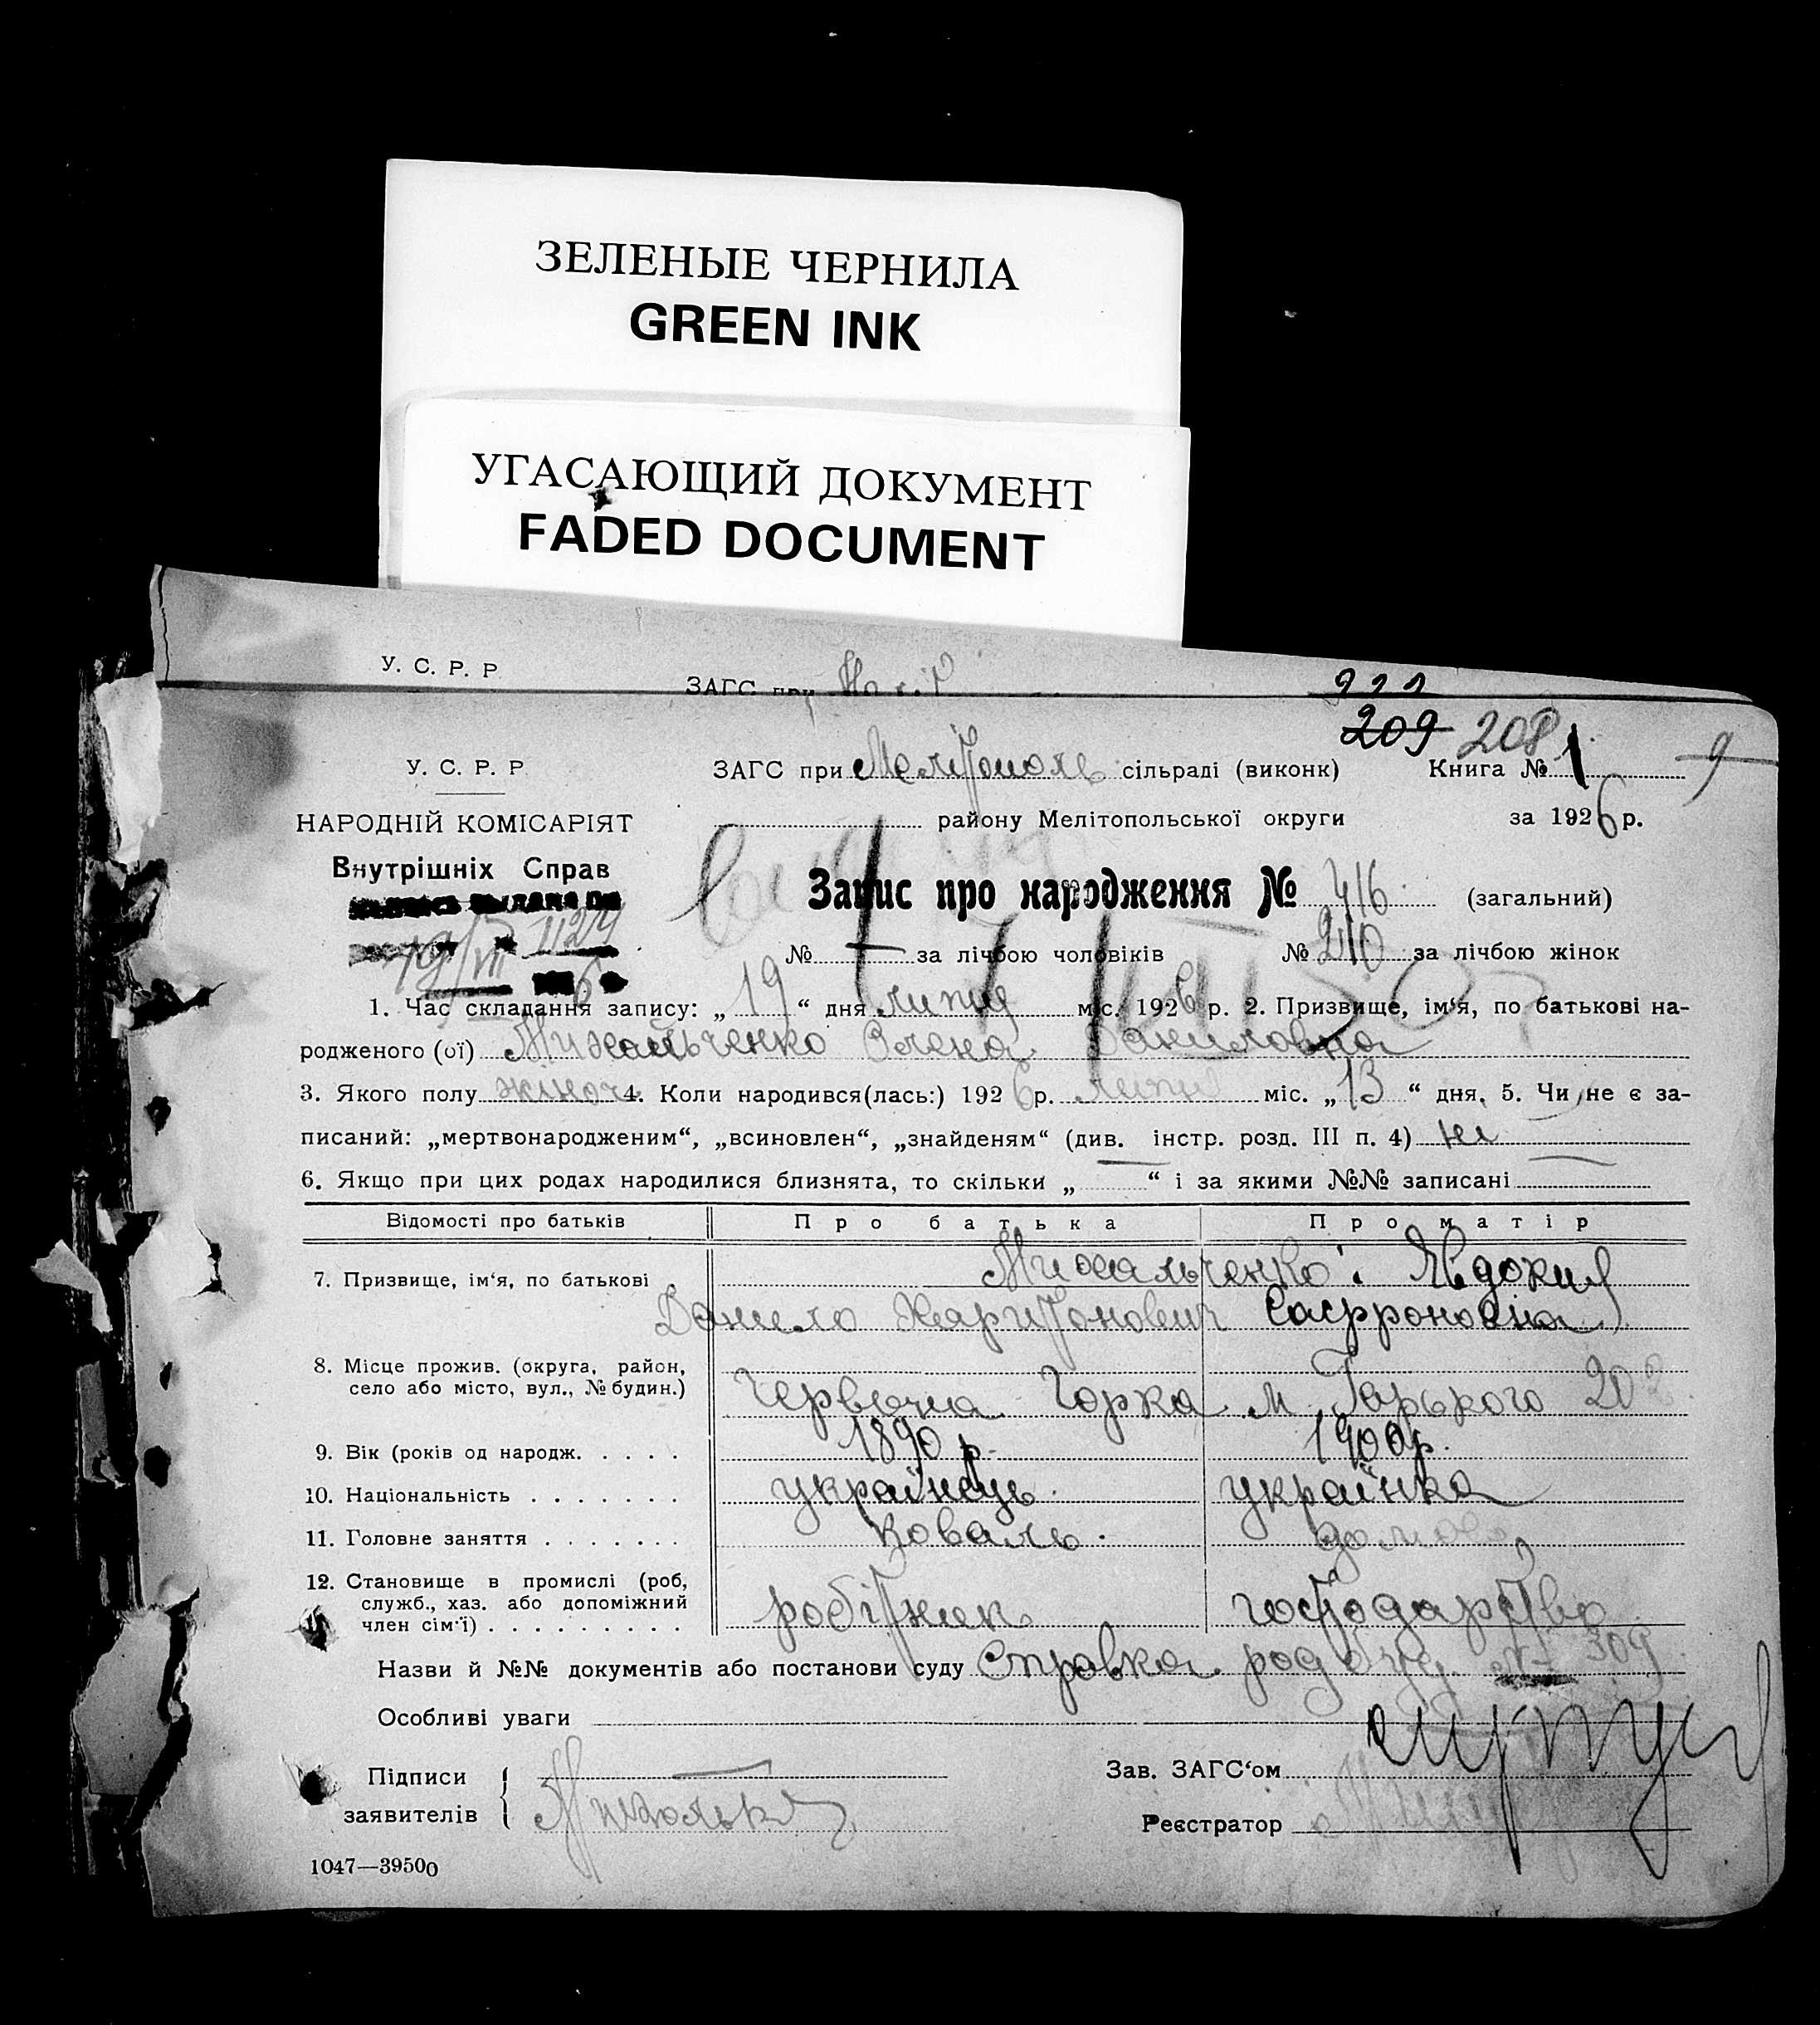 ЗЕЛЕНЫЕ ЧЕРНИЛА
GREEN INK
УГАСАЮЩИЙ ДОКУМЕНТ
FADED DOCUMENT
У. С. Р. Р
ЗАГС при
209 208
У. С. Р. Р
ЗАГС при Мелітополь сільраді (виконк) Книга № 1 9
НАРОДНІЙ КОМІСАРІЯТ
району Мелітопольської округи за 1926 р.
Внутрішніх Справ
Запис про народження № 416 (загальний)
19/VII 1124
6
№ за лічбою чоловіків № 210 за лічбою жінок
1. Час складання запису: „ 19 “ дня липця міс. 1926 р. 2. Призвище, ім‘я, по батькові на-
родженого (ої) Михальченко Олена Даниловна
3. Якого полу жіноч. 4. Коли народився(лась:) 1926 р. липця міс. „ 13 “ дня. 5. Чи не є за-
писаний: „мертвонародженим“, „всиновлен“, „знайденям“ (див. інстр. розд. III п. 4) ні
6. Якщо при цих родах народилися близнята, то скільки „ “ і за якими №№ записані
Відомості про батьків Про батька Про матір
7. Призвище, ім‘я, по батькові Михальченко: Явдокия
Данило Харитонович Сафроновна
8. Місце прожив. (округа, район,
село або місто, вул., № будин.) Червона Горка М. Гарького 202
9. Вік (років од народж. . . . . 1890 р. 1900 р.
10. Національність . . . . . . . українець українка
11. Головне заняття . . . . . . . коваль домове
12. Становище в промислі (роб,
служб., хаз. або допоміжний
член сім‘ї) . . . . . . . . . робітник господарство
Назви й №№ документів або постанови суду Справка род буд № 309
Особливі уваги
Підписи
заявителів
Зав. ЗАГС‘ом
Реєстратор
1047—39500